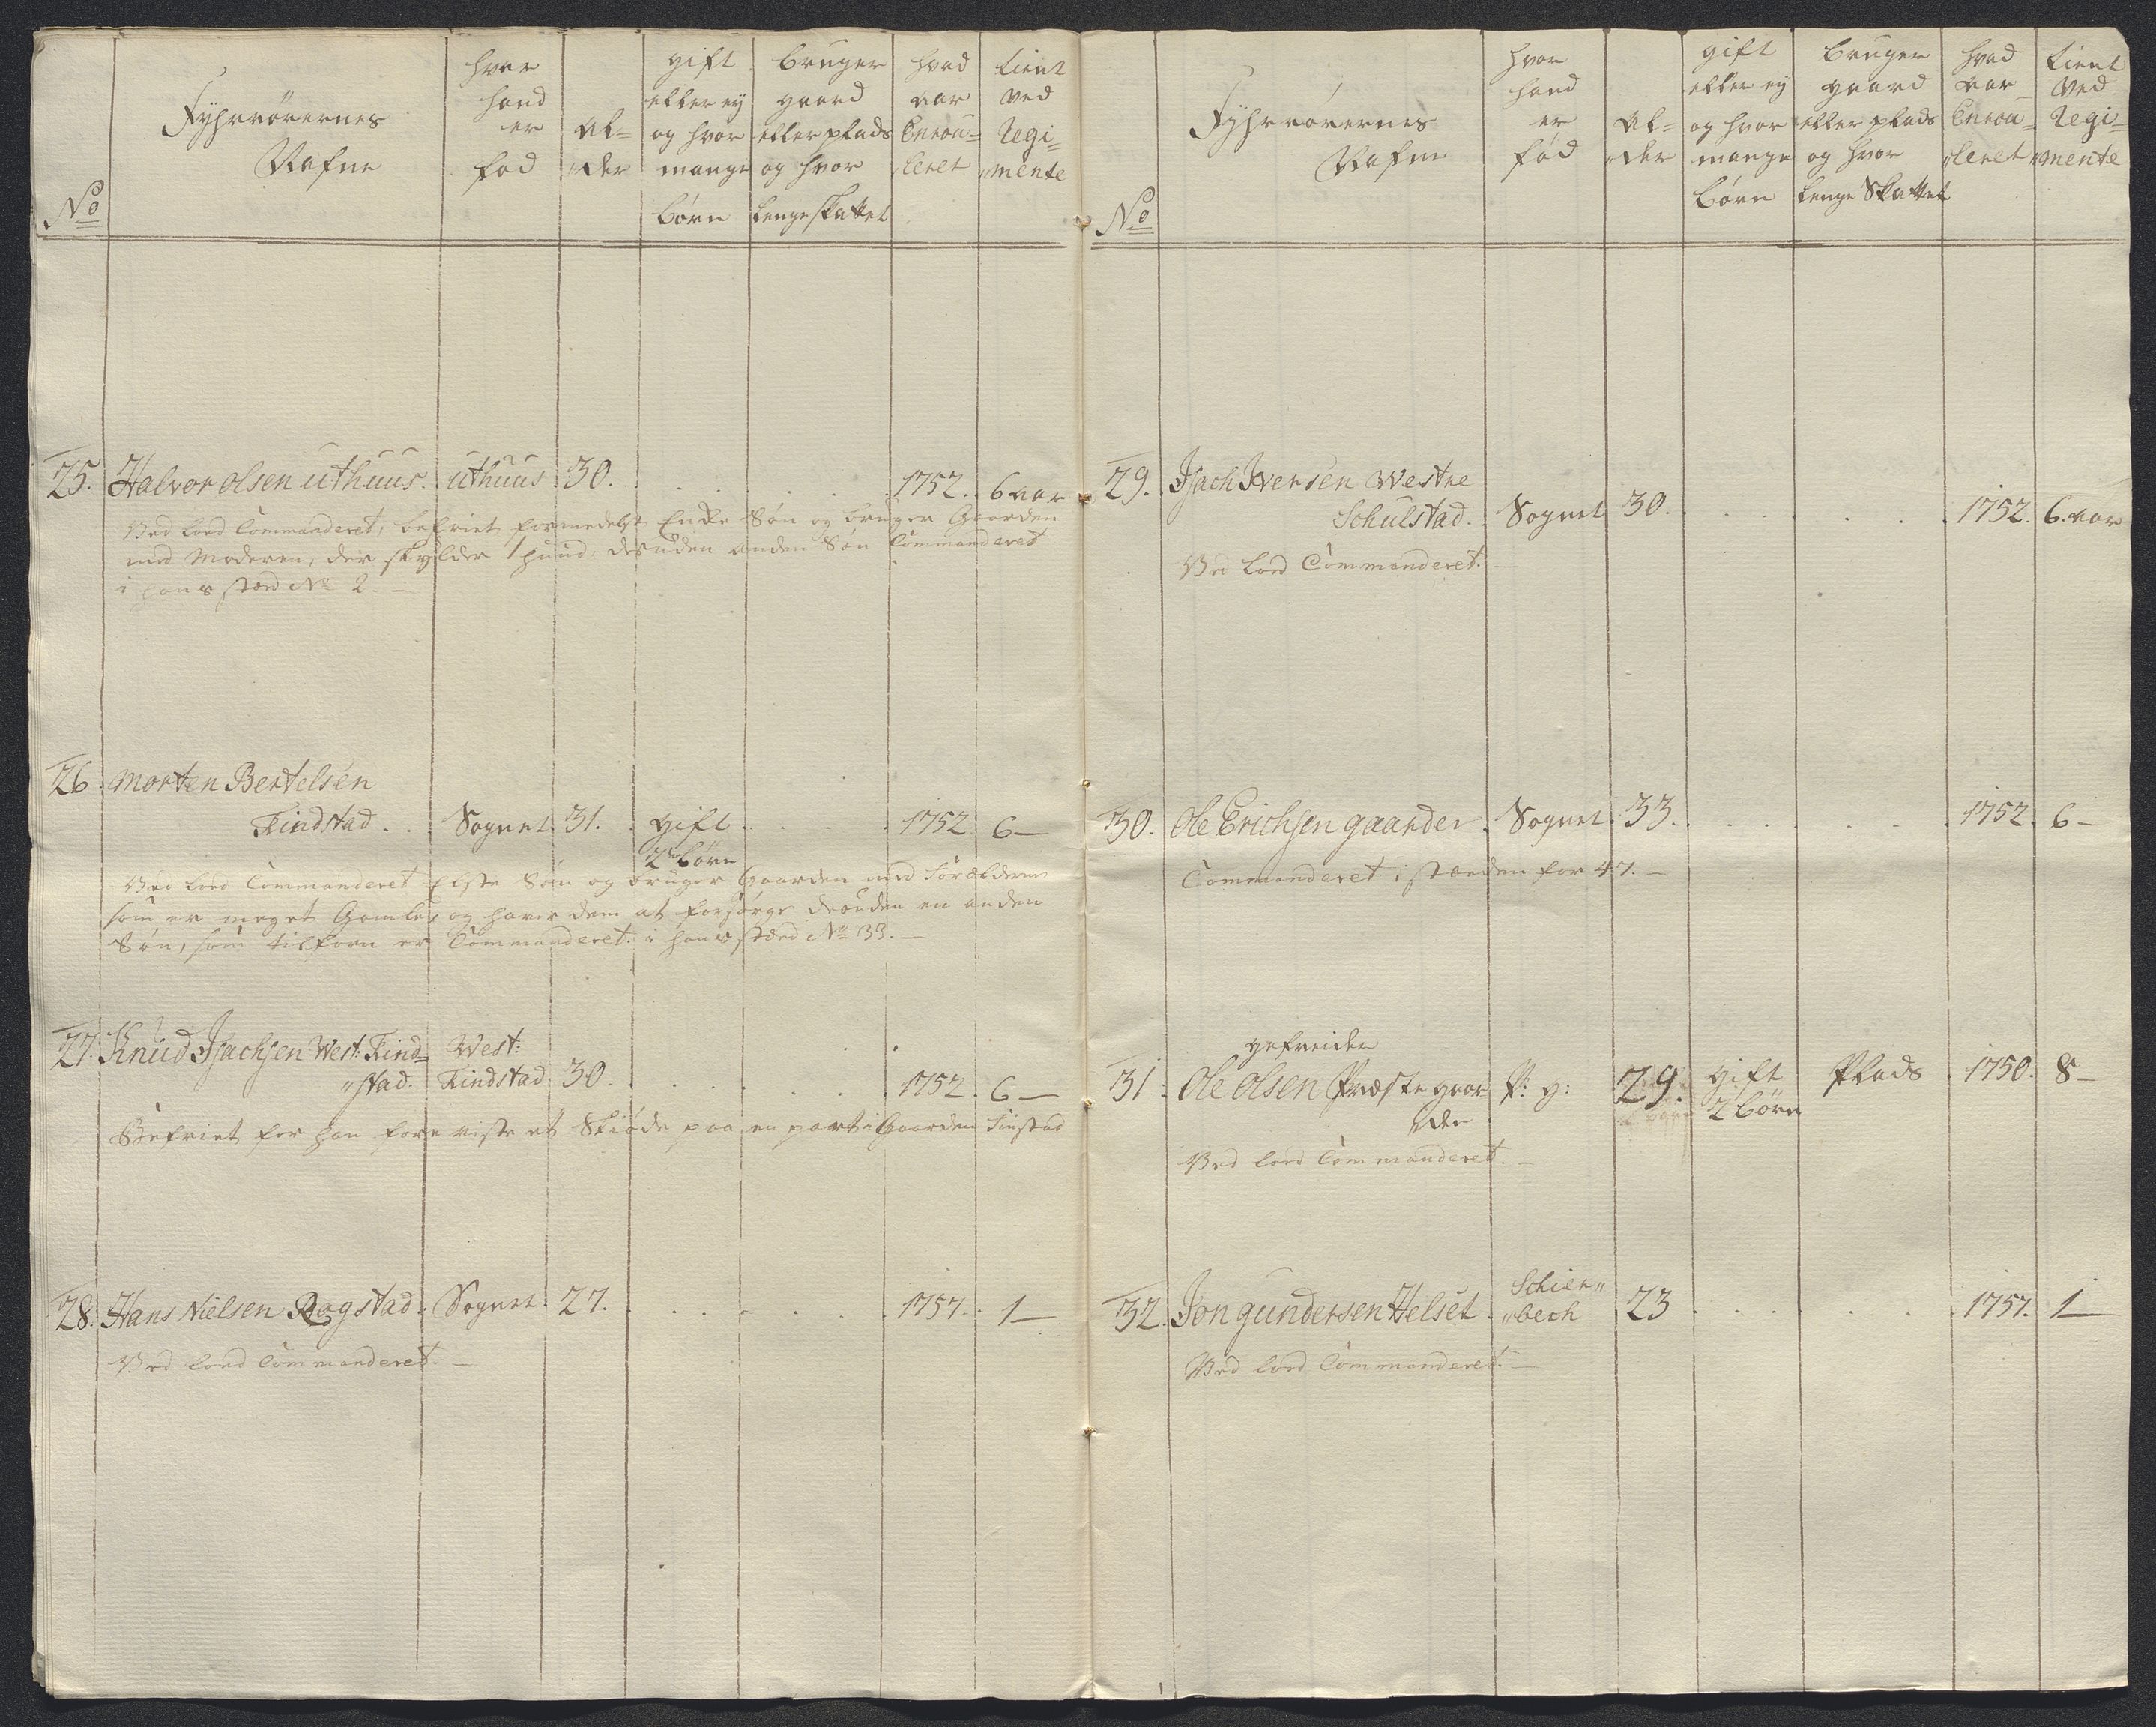 No
Fyhrrörernes
Nafne
hvor
hand
er
fød
Al=
der
gift
eller ey
og hvor
mange
børn
bruger
gaard
eller plads
og hvor
lenge skattet
hvad
aar
Enrou=
leret
tient
ved
Regi=
mente
25. Halvor olsen uthuus. uthuus 30. 1752. 6 aar
Ved Lord Commanderet, befriet formedelst Enke Søn og bruger Gaarden
med Moderen, der skylder 1 pund, desuden anden Søn Commanderet
i hans sted No 2.
26. Morten Bertelsen
Findstad. Sognet. 31. gift 1752. 6 —
2 børn
Ved Lord Commanderet Elste Søn og bruger Gaarden med Forældrene
som er meget Gamle, og haver dem at forsørge desuden en anden
Søn, som tilforn er Commanderet. i hans sted No 33. —
27. Knud Isachsen West: Find= West:
stad. Findstad 30. 1752. 6 —
Befriet for han foreviste et Skiøde paa en part i Gaarden Finstad
28. Hans Nielsen Rogstad. Sognet. 27. 1757. 1 —
Ved Lord Commanderet. —
No
Fyhrrörernes
Nafne
hvor
hand
er
fød
Al=
der
gift
eller ey
og hvor
mange
børn
bruger
gaard
eller plads
og hvor
lenge Skattet
hvad
aar
Enrou=
leret
tient
ved
Regi=
mente
29. Isach Iversen Westre
Schulstad. Sognet 30. 1752. 6. aar
Ved Lord Commanderet. —
30. Ole Erichsen gaarder. Sognet. 33. 1752. 6 —
Commanderet i steden for 47. —
gefreider
31. Ole Olsen Præstegaar P: g: 29. gift Plads 1750. 8 —
den 2 børn
Ved Lord Commanderet. —
32. Jon gundersen Helset. Schier„
„bech 23 1757. 1 —
Ved Lord Commanderet. —